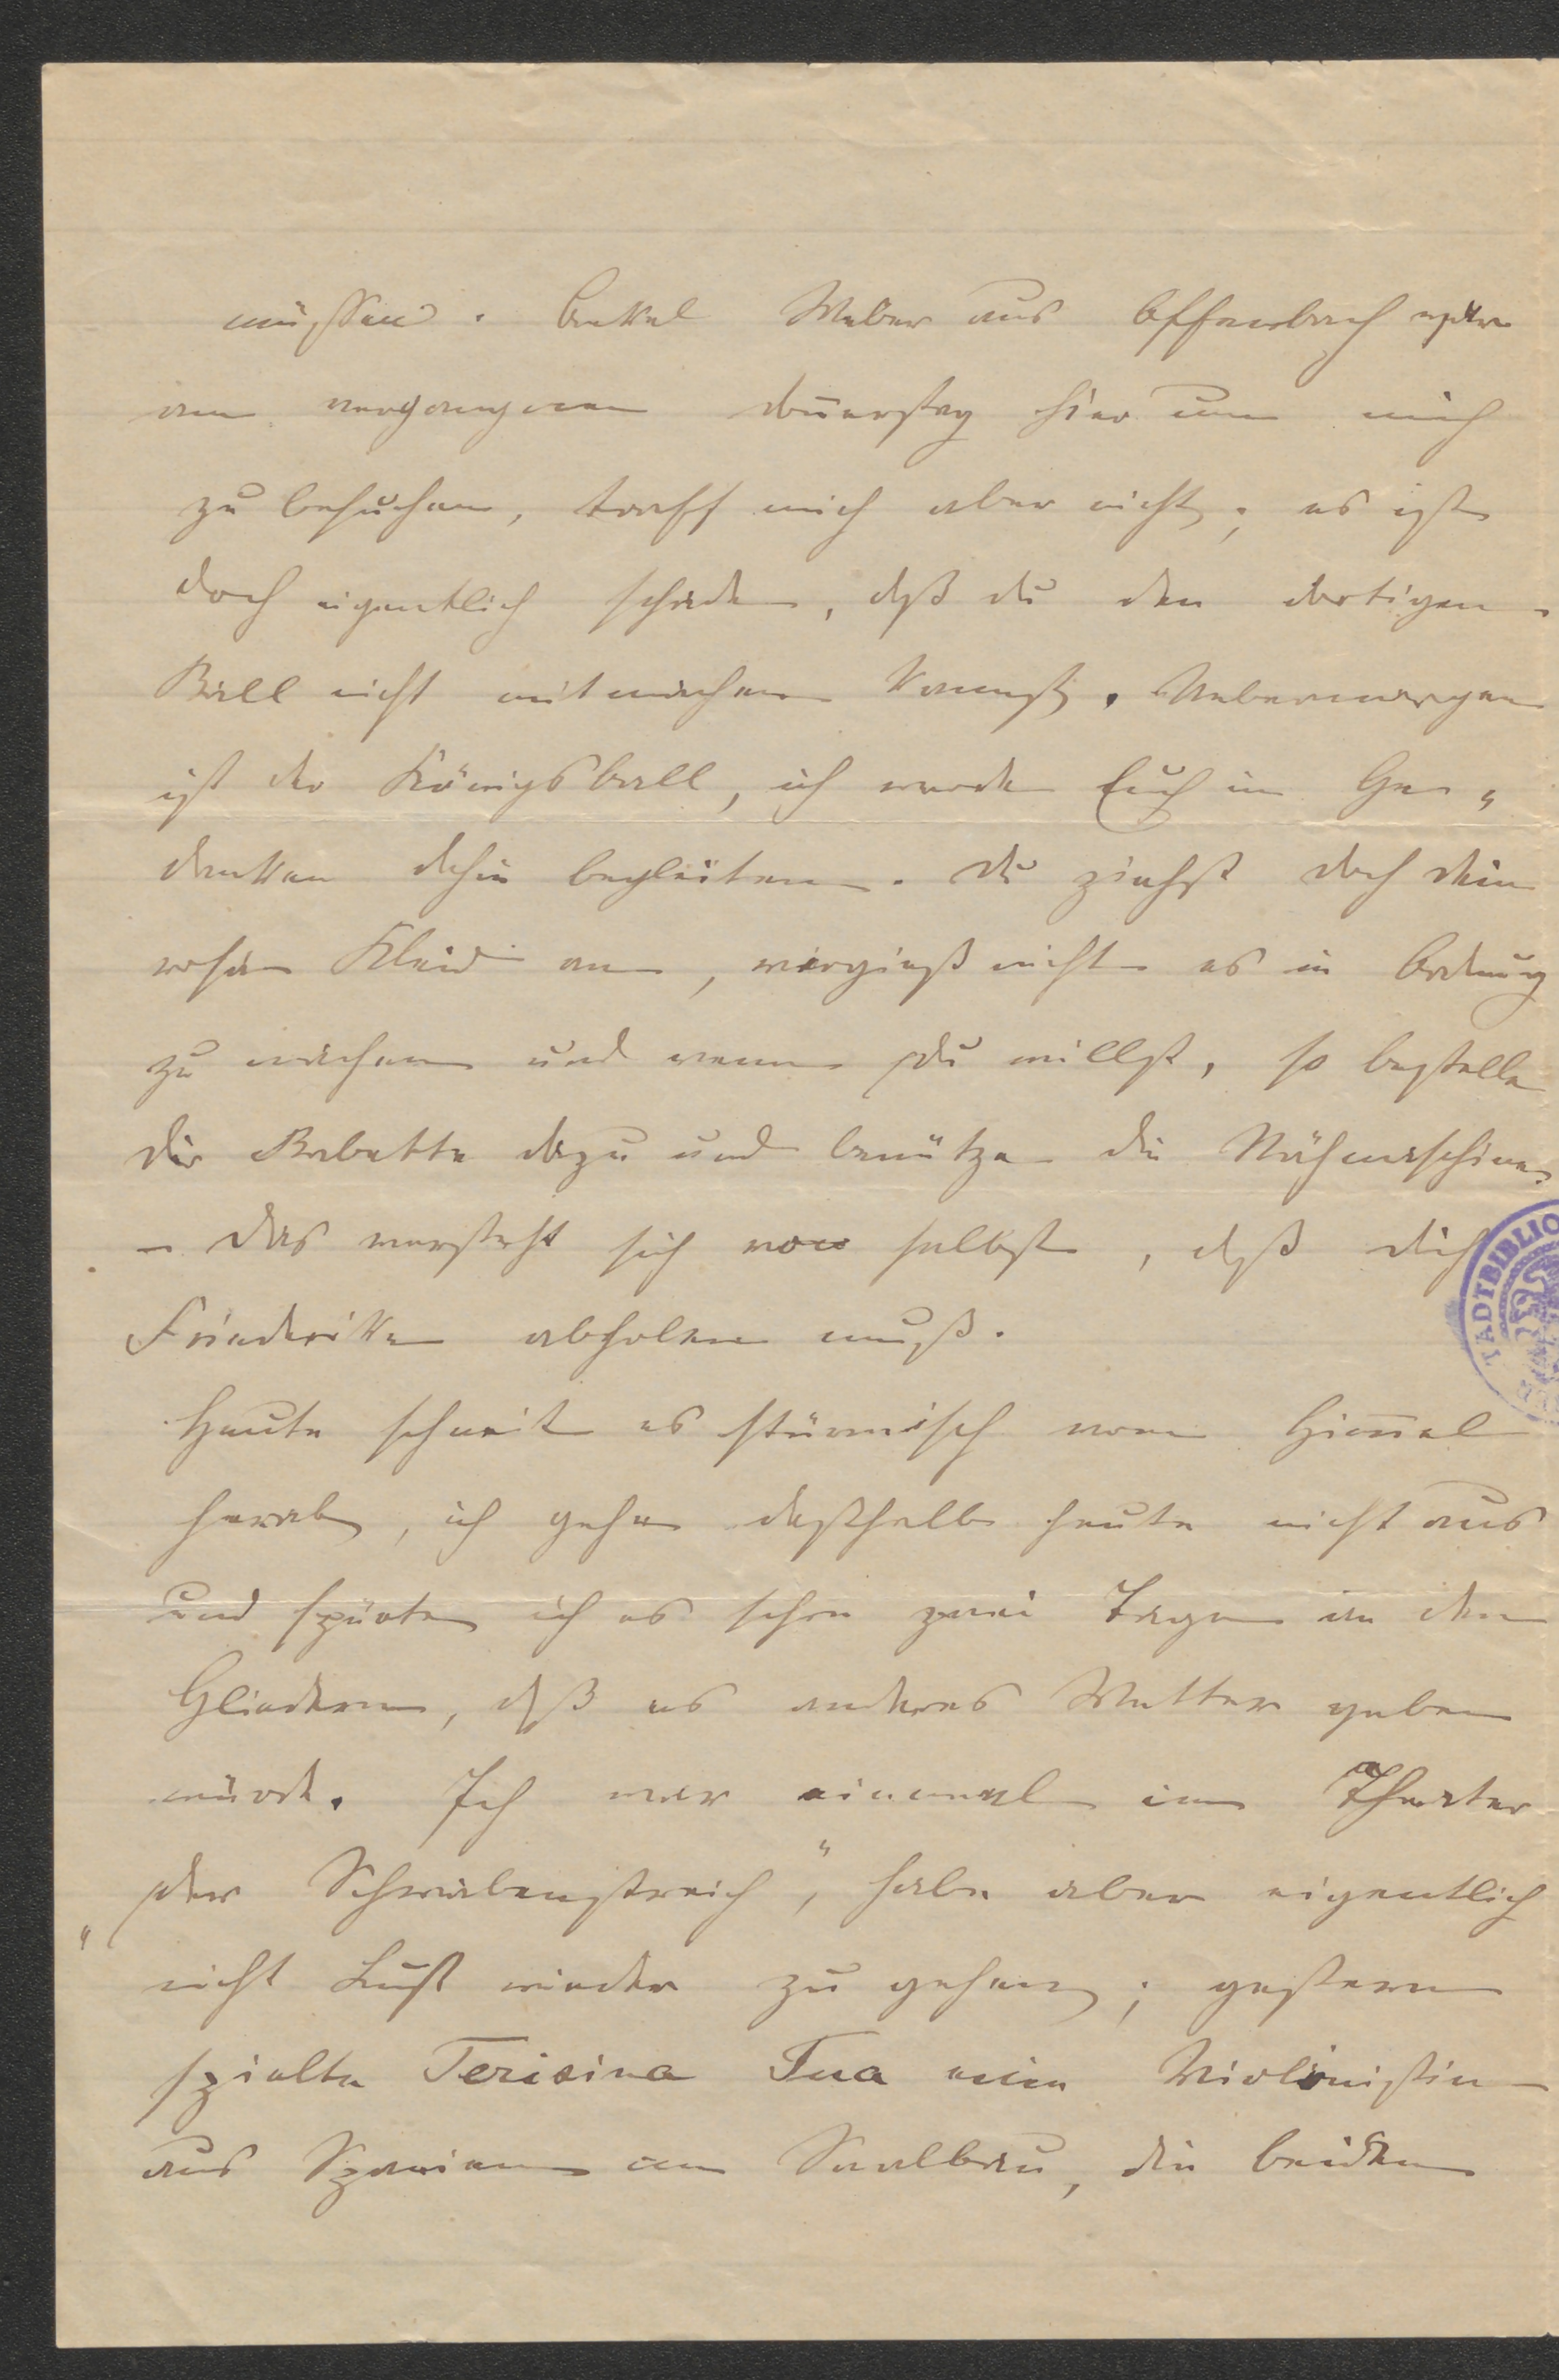 müssen. Onkel Weber aus Offenbach war
am vergangenen Don̄erstag hier um mich
zu besuchen, traff mich aber nicht; es ist
doch eigentlich schade, daß du den dortigen
Ball nicht mitmachen kannst. Uebermorgen
ist der Königsball, ich werde Euch in Ge„
danken dahin begleiten. Du ziehst doch dein
rosa Kleid an, vergieß nicht es in Ordnung
zu machen und wenn du willst, so bestelle
dir Babette dazu und benütze die Nähmaschine.
– Das versteht sich von selbst, daß dich
Friederike abholen muß.
Heute schneit es stürmisch vom Him̄el
herab, ich gehe deßhalb heute nicht aus
und spürte ich es schon zwei Tage in den
Gliedern, daß es anderes Wetter geben
würde. Ich war einmal im Theater
„der Schwabenstreich“, habe aber eigentlich
nicht Lust wieder zu gehen; gestern
spielte Terisina Tua eine Violinistin
aus Spanien im Saalbau, die beiden
TADTBIBLIO